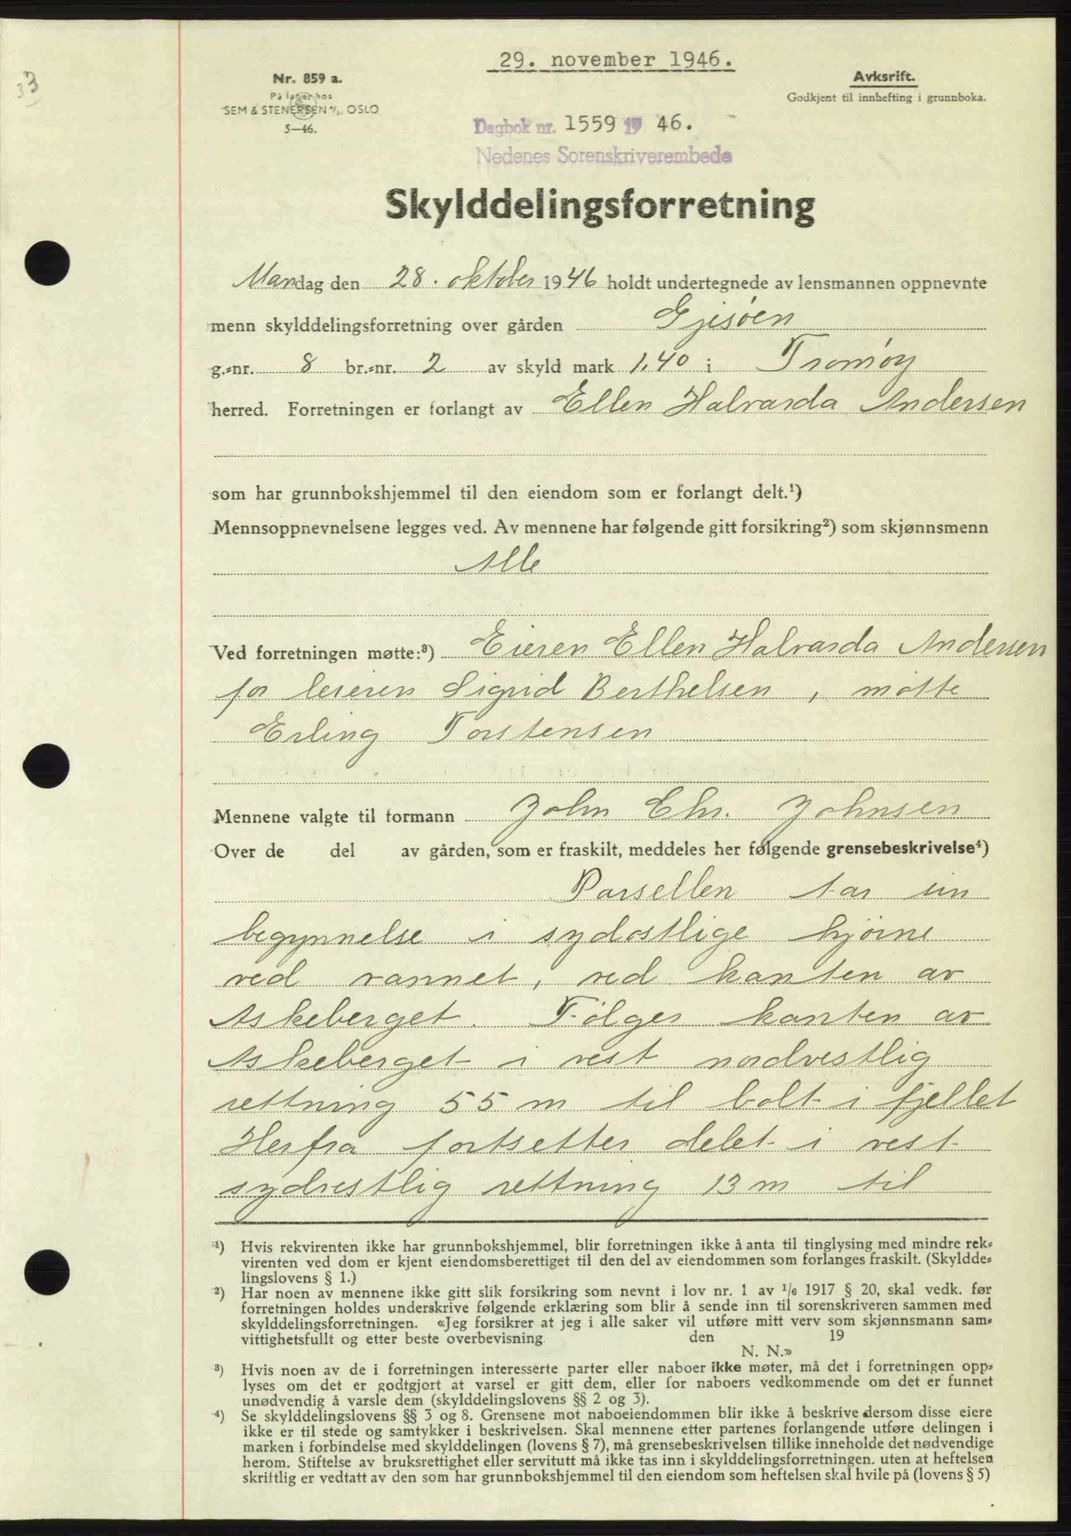 33
29. november 1946.
Nr. 859 a.
På lager hos
SEM & STENERSEN A/S. OSLO
5—46.
Avksrift.
Godkjent til innhefting i grunnboka.
Dagbok nr. 1559 19 46.
Nedenes Sorenskriverembede
Skylddelingsforretning
Mandag den 28. oktober 1946 holdt undertegnede av lensmannen oppnevnte
menn skylddelingsforretning over gården Gjesøen
g.-nr. 8 br.-nr. 2 av skyld mark 1,40 i Tromøy
herred. Forretningen er forlangt av Ellen Halvarda Andersen
som har grunnbokshjemmel til den eiendom som er forlangt delt.¹)
Mennsoppnevnelsene legges ved. Av mennene har følgende gitt forsikring²) som skjønnsmenn
Alle
Ved forretningen møtte:³) Eieren Ellen Halvarda Andersen
for leieren Sigrid Berthelsen, møtte
Erling Torstensen
Mennene valgte til formann John Chr. Johnsen
Over de del av gården, som er fraskilt, meddeles her følgende grensebeskrivelse⁴)
Parsellen tar sin
begynnelse i sydøstlige hjørne
ved vannet, ved kanten av
Askeberget. Følger kanten av
Askeberget i vest nordvestlig
rettning 55 m til bolt i fjellet
Herfra fortsetter delet i vest-
sydvestlig rettning 13 m til
¹) Hvis rekvirenten ikke har grunnbokshjemmel, blir forretningen ikke å anta til tinglysing med mindre rek-
virenten ved dom er kjent eiendomsberettiget til den del av eiendommen som forlanges fraskilt. (Skyldde-
lingslovens § 1.)
²) Har noen av mennene ikke gitt slik forsikring som nevnt i lov nr. 1 av 1/6 1917 § 20, skal vedk. før
forretningen holdes underskrive følgende erklæring som blir å sende inn til sorenskriveren sammen med
skylddelingsforretningen. «Jeg forsikrer at jeg i alle saker vil utføre mitt verv som skjønnsmann sam-
vittighetsfullt og etter beste overbevisning den 19
N. N.»
³) Hvis noen av de i forretningen interesserte parter eller naboer ikke møter, må det i forretningen opp-
lyses om det er godtgjort at varsel er gitt dem, eller for naboers vedkommende om det er funnet
unødvendig å varsle dem (skylddelingslovens §§ 2 og 3).
⁴) Se skylddelingslovens §§ 3 og 8. Grensene mot naboeiendommen blir ikke å beskrive dersom disse eiere
ikke er til stede og samtykker i beskrivelsen. Skal mennene etter partenes forlangende utføre delingen i
marken i forbindelse med skylddelingen (lovens § 7), må grensebeskrivelsen tillike inneholde det nødvendige
herom. Stiftelse av bruksrettighet eller servitutt må ikke tas inn i skylddelingsforretningen. uten at heftelsen
skriftlig er vedtatt av den som har grunnbokshjemmel til den eiendom som heftelsen skal hvile på (lovens § 5)